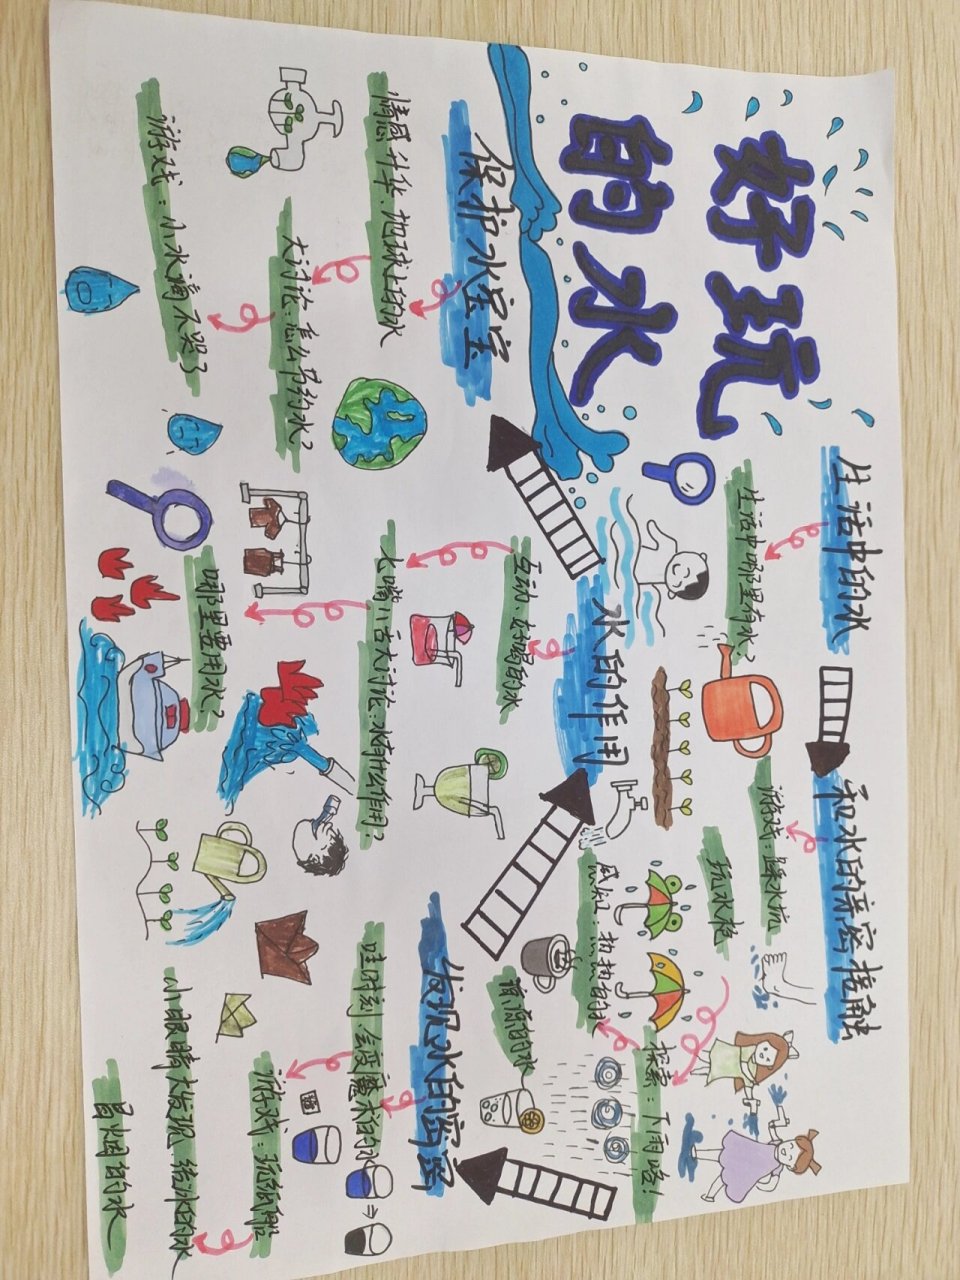 好玩
的水
生活中的水
生活中哪里有水？
和水的亲密接触
游戏：踩水坑
玩水枪
探索：下雨啦！
感知：热热的水
凉凉的水
发现水的秘密
哇时刻：会变魔术的水
游戏：玩纸船
小眼睛大发现：结冰的水
冒烟的水
水的作用
互动：好喝的水
大嘴小舌大讨论：水有什么作用？
哪里要用水？
保护水宝宝
情感升华：地球上的水
大讨论：怎么节约水？
游戏：小水滴不哭了